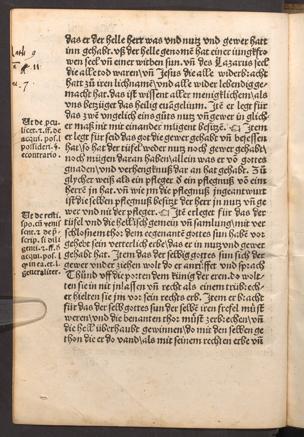 das er der helle herr was vnd nutz vnd gewer hatt
inn gehabt. vß der helle genomē hat einer iungkfro
wen seel vn̄ einer witben sun. vn̄ des Lazarus seel
die alle tod waren/vn̄ Jesus die alle widerb:acht
hatt zů iren lichnamē/vnd alle wider lebendig ge⸗
macht hat. das ist wissent aller menigklichem/als
vns betzüget das heilig euāgeliū. Itē er legt für
das zwē vngelich eins gůts nutz vn̄ gewer in glich⸗
er maß nit mit einander mügent besitzē. Itē er
legt für seid das got die gewer gehabt vn̄ besessen
hat/so hat der tüfel weder nutz noch gewer gehabt/
noch mügen daran haben/allein was er vō gottes
gnaden/vnd verhengknuß dar an gehabt hat. Zů
glycher weiß ald ein pfleger d̄ ein pflegnuß vō eim
herrē in hat. vn̄ wie jm die pflegnuß jngeantwurt
ist die selben pflegnuß besitzt der herr in nutz vn̄ ge
wer vnd nit der pfleger. Itē er leget für das der
tüfel vnd die hellisch gemein vn̄ samlung/mit ver
schloßnem tho: dem ee genanten gottes sun habē vor
gehebt sein vetterlich erbe/das er in nutz vnd gewer
gehabt hat. Item das der selbig gottes sun sich der
gewer vnder ziehen wolt do er anrüfft vnd sprach
Thünd vff die porten dem künig der eren. do wolt⸗
ten sie in nit jnlassen vn̄ recht als einem trüb:ech⸗
er hielten sie jm vor sein rechts erb. Item er b:acht
für das der selb gottes sun der selbe iren frefel müst
weren/vnd die benanten tho: müst zerb:echen/vn̄
die hell überhaubt gewinnen/do mit den selben ge
thon die er do vand/als mit seinem rechten erbe vn̄
Luce 7
Joh. 11
Ut de pecu
licet. r. ff. de
acqui. pos.
possideri. r.
econtrario.
Ut de resti.
spo. cū veniss
sent. r de p:e
scrip. si dili
genti. r. ff. de
acqui. pos. l.
generaliter.